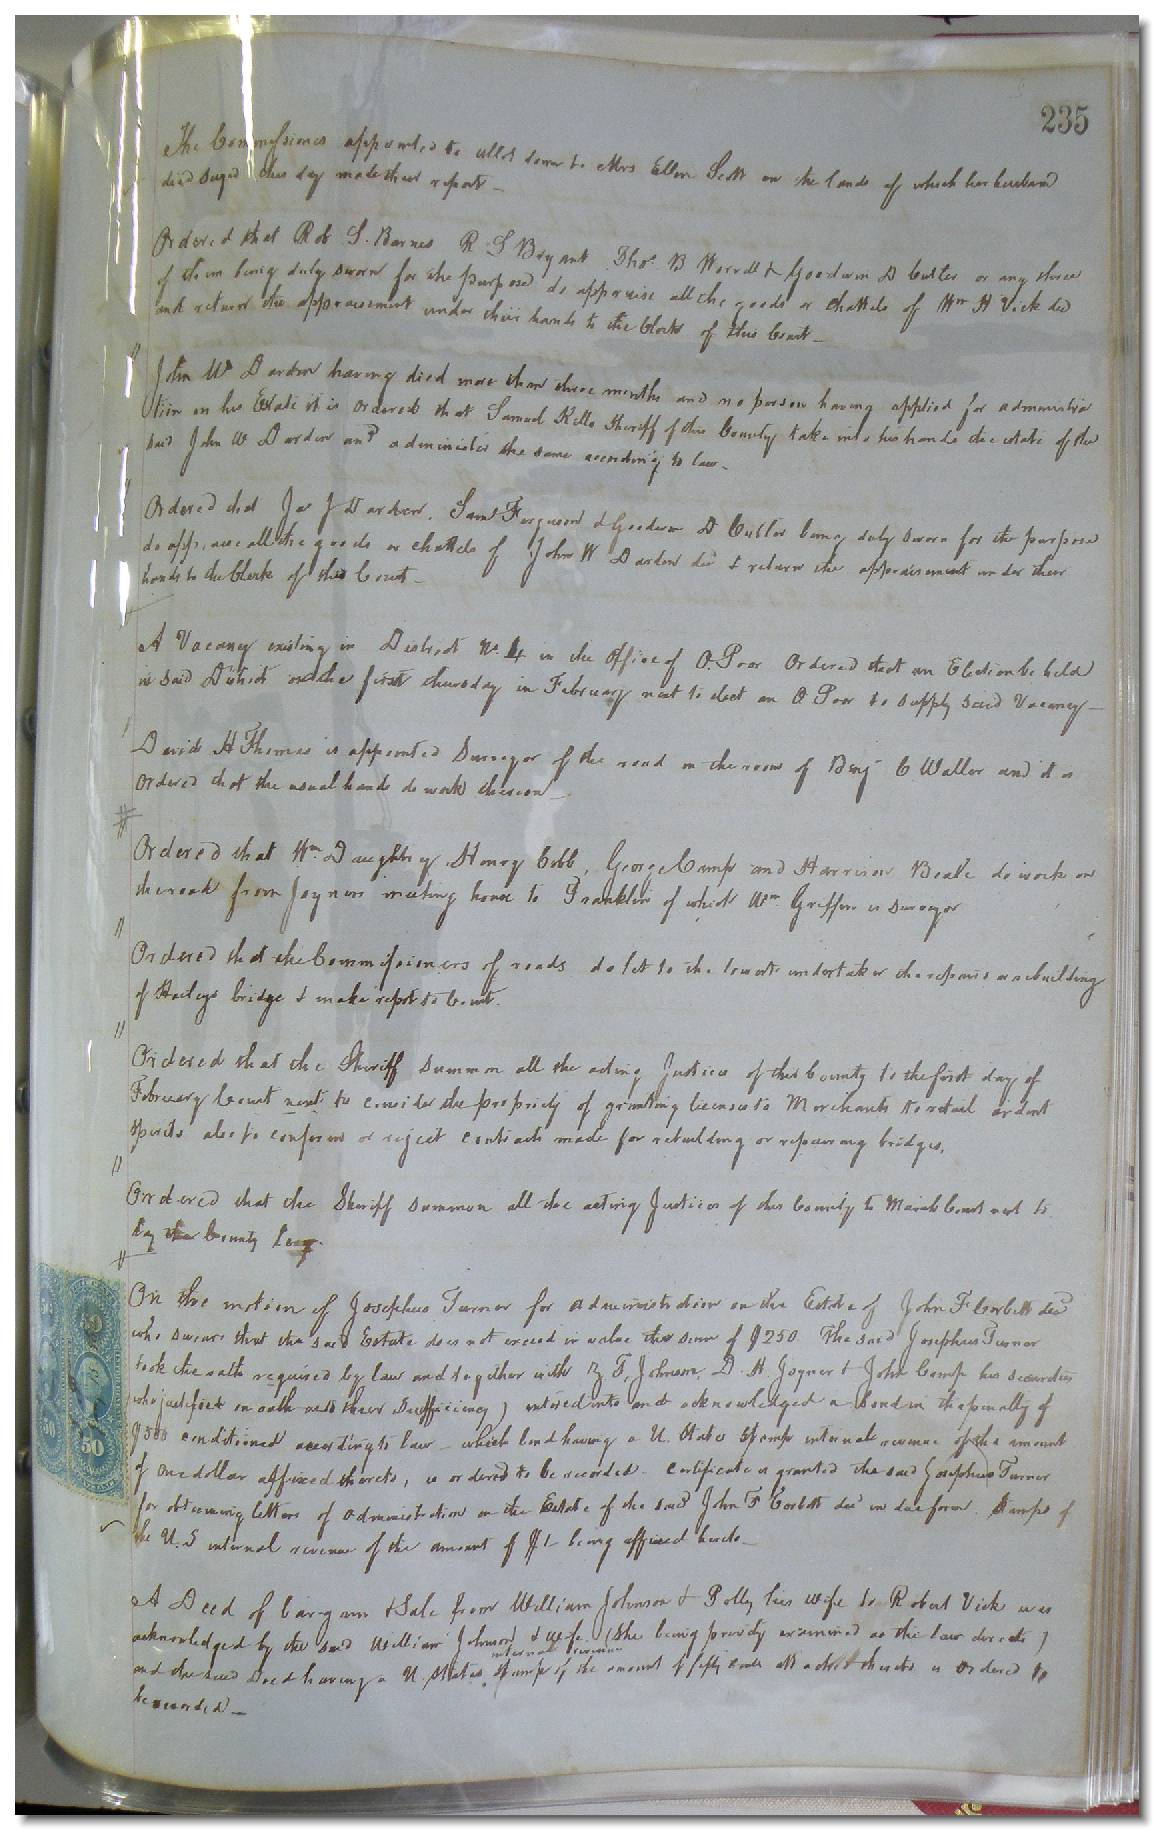 235
The Commissioners appointed to allot dower to Mrs Ellen Scott on the lands of which her husband
died seized this day made their report —
Ordered that Rob S. Barnes R S Bryant Thos B Worrell & Goodwin D Cutler or any three
of them being duly sworn for the purpose do appraise all the goods or chattels of Wm H Vick decd
and return the appraisement under their hands to the Clerk of this Court —
John W Darden having died more than three months and no person having applied for administra
tion on his Estate it is ordered that Samuel Kello Sheriff of this County take into his hands the estate of the
said John W Darden and administer the same according to law —
Ordered that Jas J Darden, Saml Ferguson & Goodwin D Cutler being duly sworn for the purpose
do appraise all the goods or chattels of John W Darden decd & return the appraisement under their
hands to the Clerk of this Court —
A Vacancy existing in District No. 4 in the Office of O. Poor Ordered that an Election be held
in said District on the first thursday in February next to elect an O Poor to supply said Vacancy —
David H Thomas is appointed Surveyor of the road in the room of Benj C Waller and it is
ordered that the usual hands do work thereon —
Ordered that Wm Daughtry Henry Cobb, George Camp and Harrison Beale do work on
the road from Joyners meeting house to Franklin of which Wm Griffin is surveyor
Ordered that the Commissioners of roads do let to the lowest undertaker the repairs or rebuilding
of Haleys bridge & make report to Court.
Ordered that the Sheriff summon all the acting Justices of this County to the first day of
February Court next to consider the propriety of granting license to Merchants to retail ardent
spirits also to confirm or reject contracts made for rebuilding or repairing bridges,
Ordered that the Sheriff summon all the acting Justices of this County to March Court next to
lay the County Levy.
On the motion of Josephus Turner for administration on the Estate of John F Corbett decd
who swears that the said Estate does not exceed in value the sum of $250. The said Josephus Turner
took the oath required by law and together with B F. Johnson, D. H. Joyner & John Camp his securities
who justified on oath as to their sufficiency) entered into and acknowledged a bond in the penalty of
$500 conditioned according to law — which bond having a U. States Stamp internal revenue of the amount
of one dollar affixed thereto, is ordered to be recorded — Certificate is granted the said Josephus Turner
for obtaining letters of administration on the Estate of the said John F Corbett decd in due form. Stamps of
the U.S internal revenue of the amount of $1 being affixed hereto —
50
A Deed of bargain & Sale from William Johnson & Polly his wife to Robert Vick was
acknowledged by the said William Johnson & wife (She being privily examined as the law directs)
internal revenue
and the said Deed having a U. States, Stamp of the amount of fifty cents attached thereto is ordered to
be recorded —